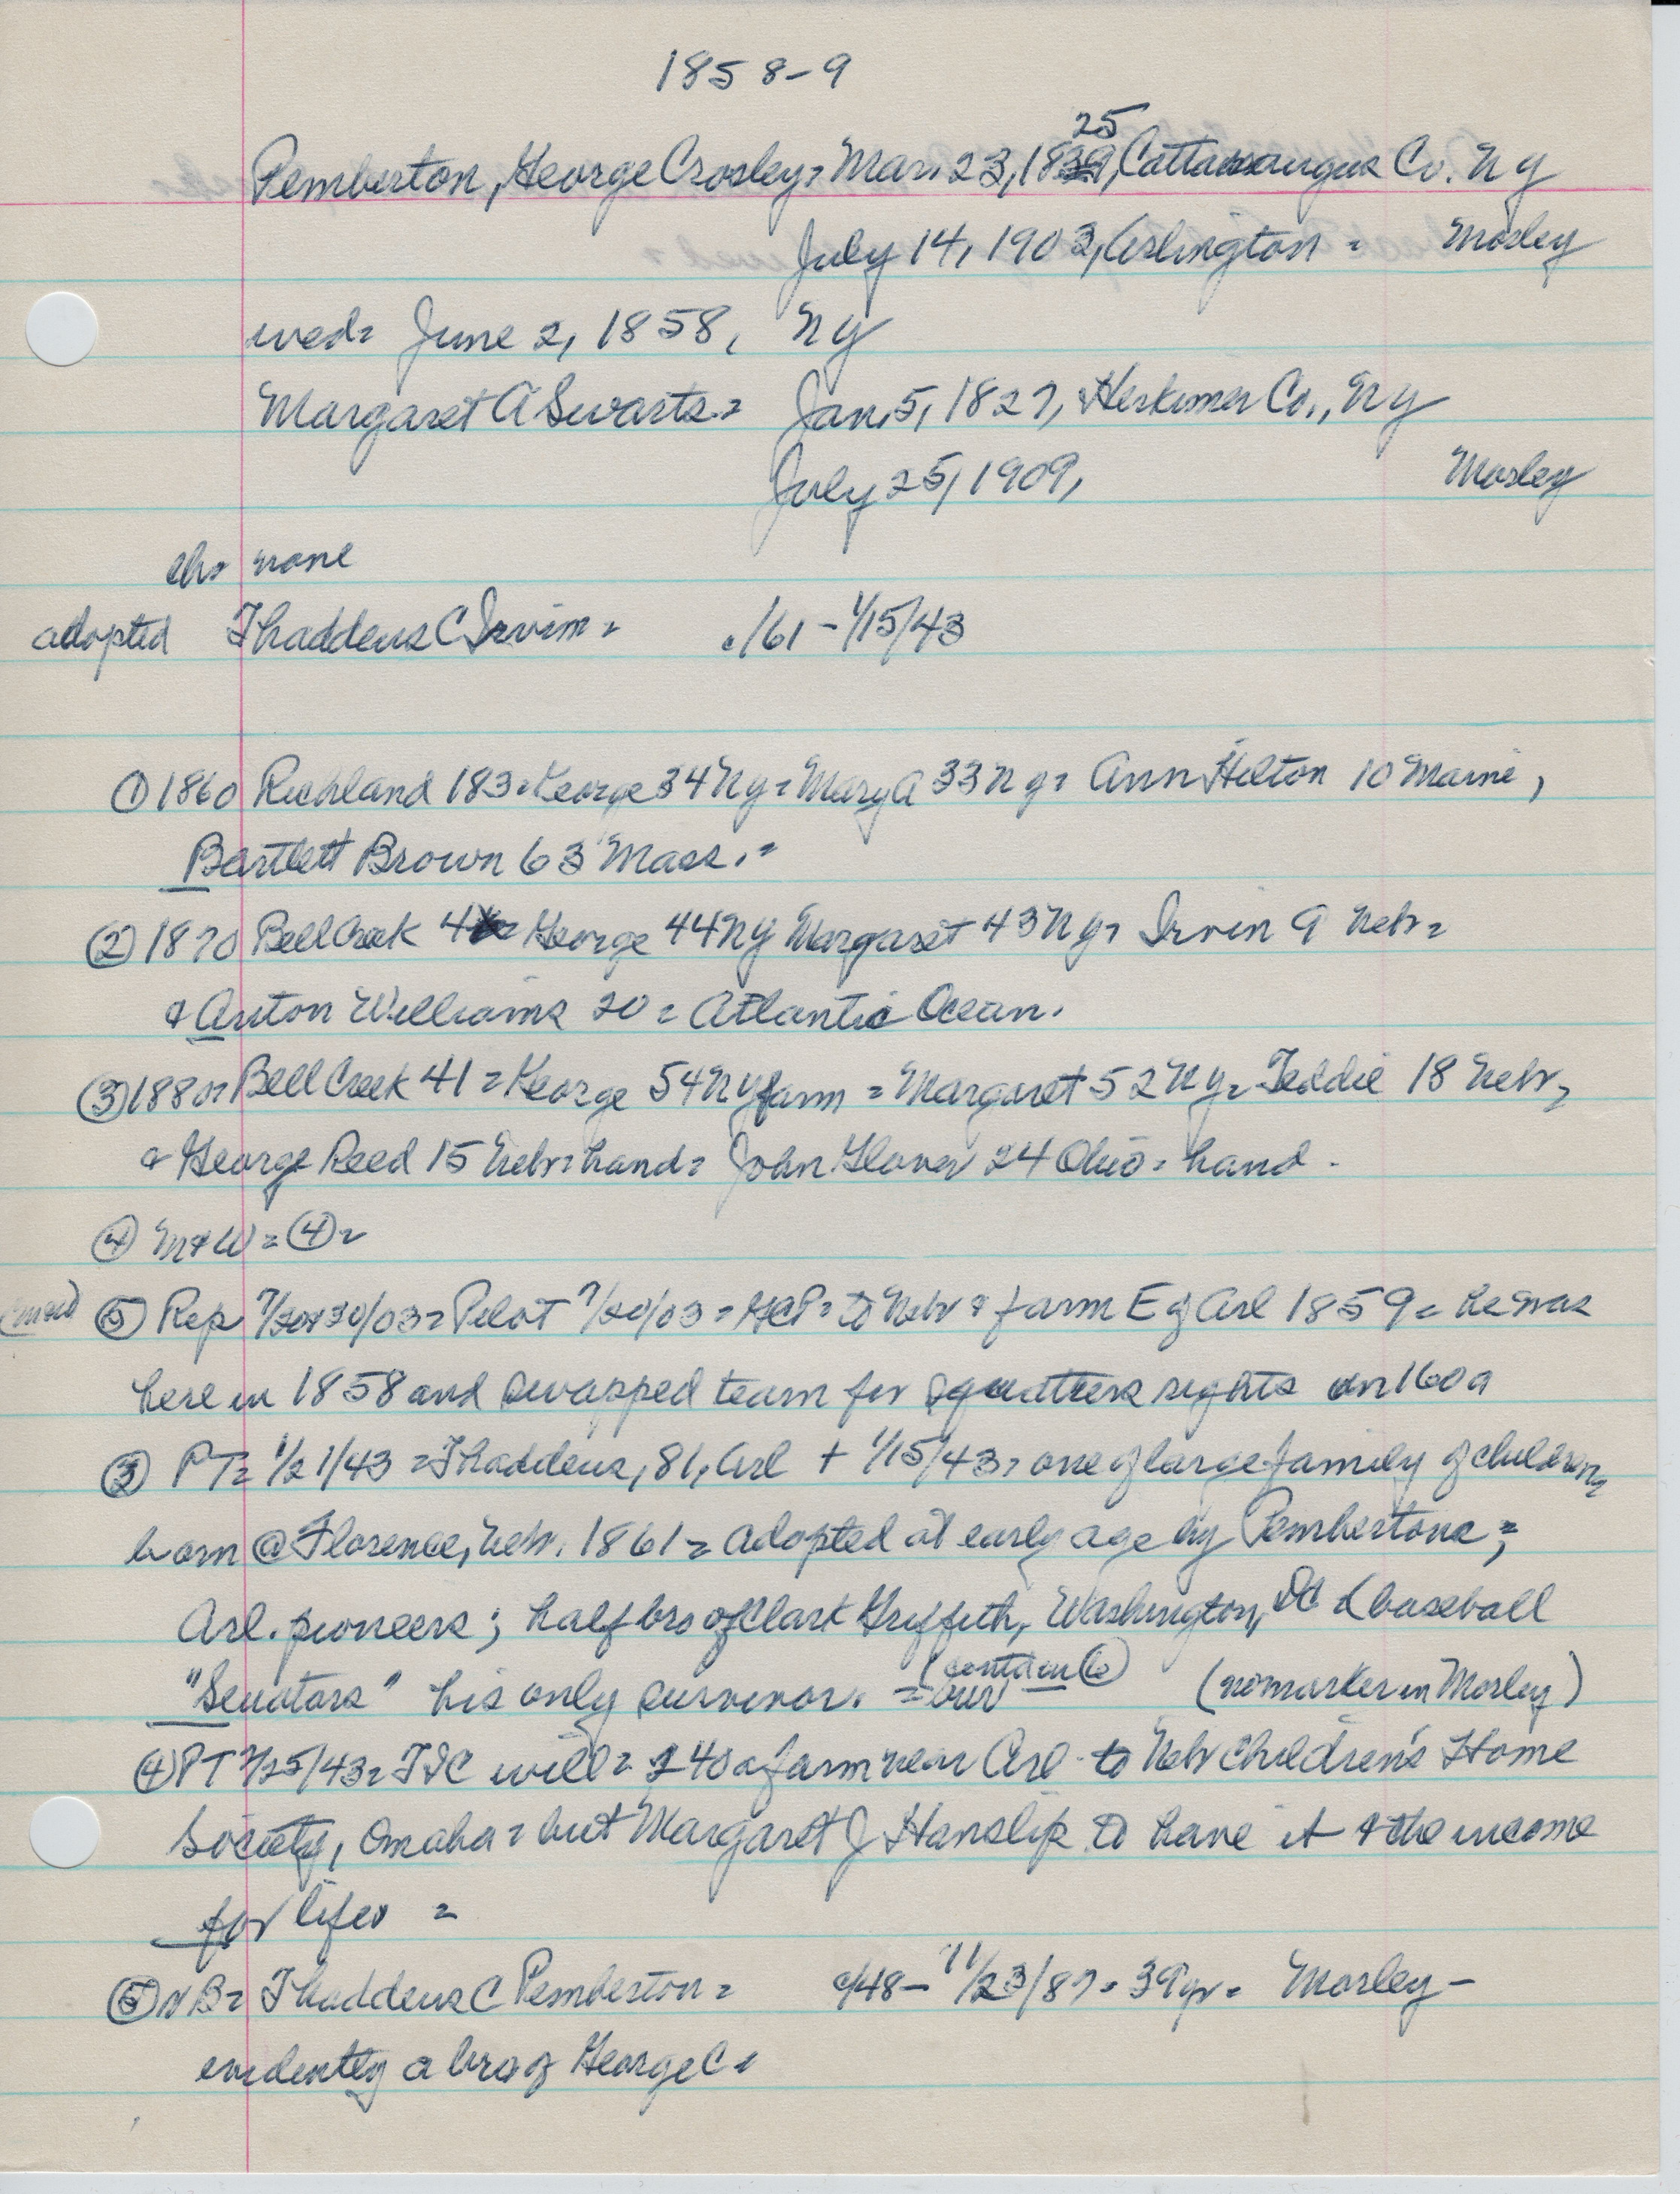 1858-9
25
Pemberton, George Crosley = Mar. 23, 1839, Cattaraugus Co. NY
July 14, 1903, Arlington = Mosley
wed = June 2, 1858, NY
Margaret A Swarts = Jan. 5, 1827, Herkimer Co., NY
July 25, 1909, Mosley
ch = none
adopted Thaddeus C Irvim = ./61 - 1/15/43
① 1860 Richland 183 = George 34 NY = Mary A 33 NY = Ann Hilton 10 Maine,
Bartlett Brown 63 Mass. =
② 1870 Bell Creek George 44 NY Margaret 43 NY = Irvin 9 Nebr =
& Anton Williams 20 = Atlantic Ocean.
③ 1880 = Bell Creek 41 = George 54 NY farm = Margaret 52 NY = Teddie 18 Nebr =
& George Reed 15 Nebr = hand = John Glover 24 Ohio = hand.
④ M & W = ④ =
⑤ Rep 7/30/03 = Pilot 7/20/03 = GCP = to Nebr & farm E of Arl 1859 = he was
here in 1858 and swapped team for squatters rights on 160 a
③ PT = 1/21/43 = Thaddeus, 81, Arl + 1/15/43 = one of large family of children,
born @ Florence, Nebr. 1861 = adopted at early age by Pembertons =,
Arl. pioneers; half bro of Clark Griffith, Washington, DC (baseball
"Senators" his only survivor. = (no marker in Mosley)
④ PT 7/25/43 = TIC will = 240 a farm near Arl to Nebr Children's Home
Society, Omaha = but Margaret J Hanslip to have it & the income
for life =
⑤ NB = Thaddeus C Pemberton = c/48 - 11/23/87 = 39 yr = Mosley -
evidently a bro of George C =